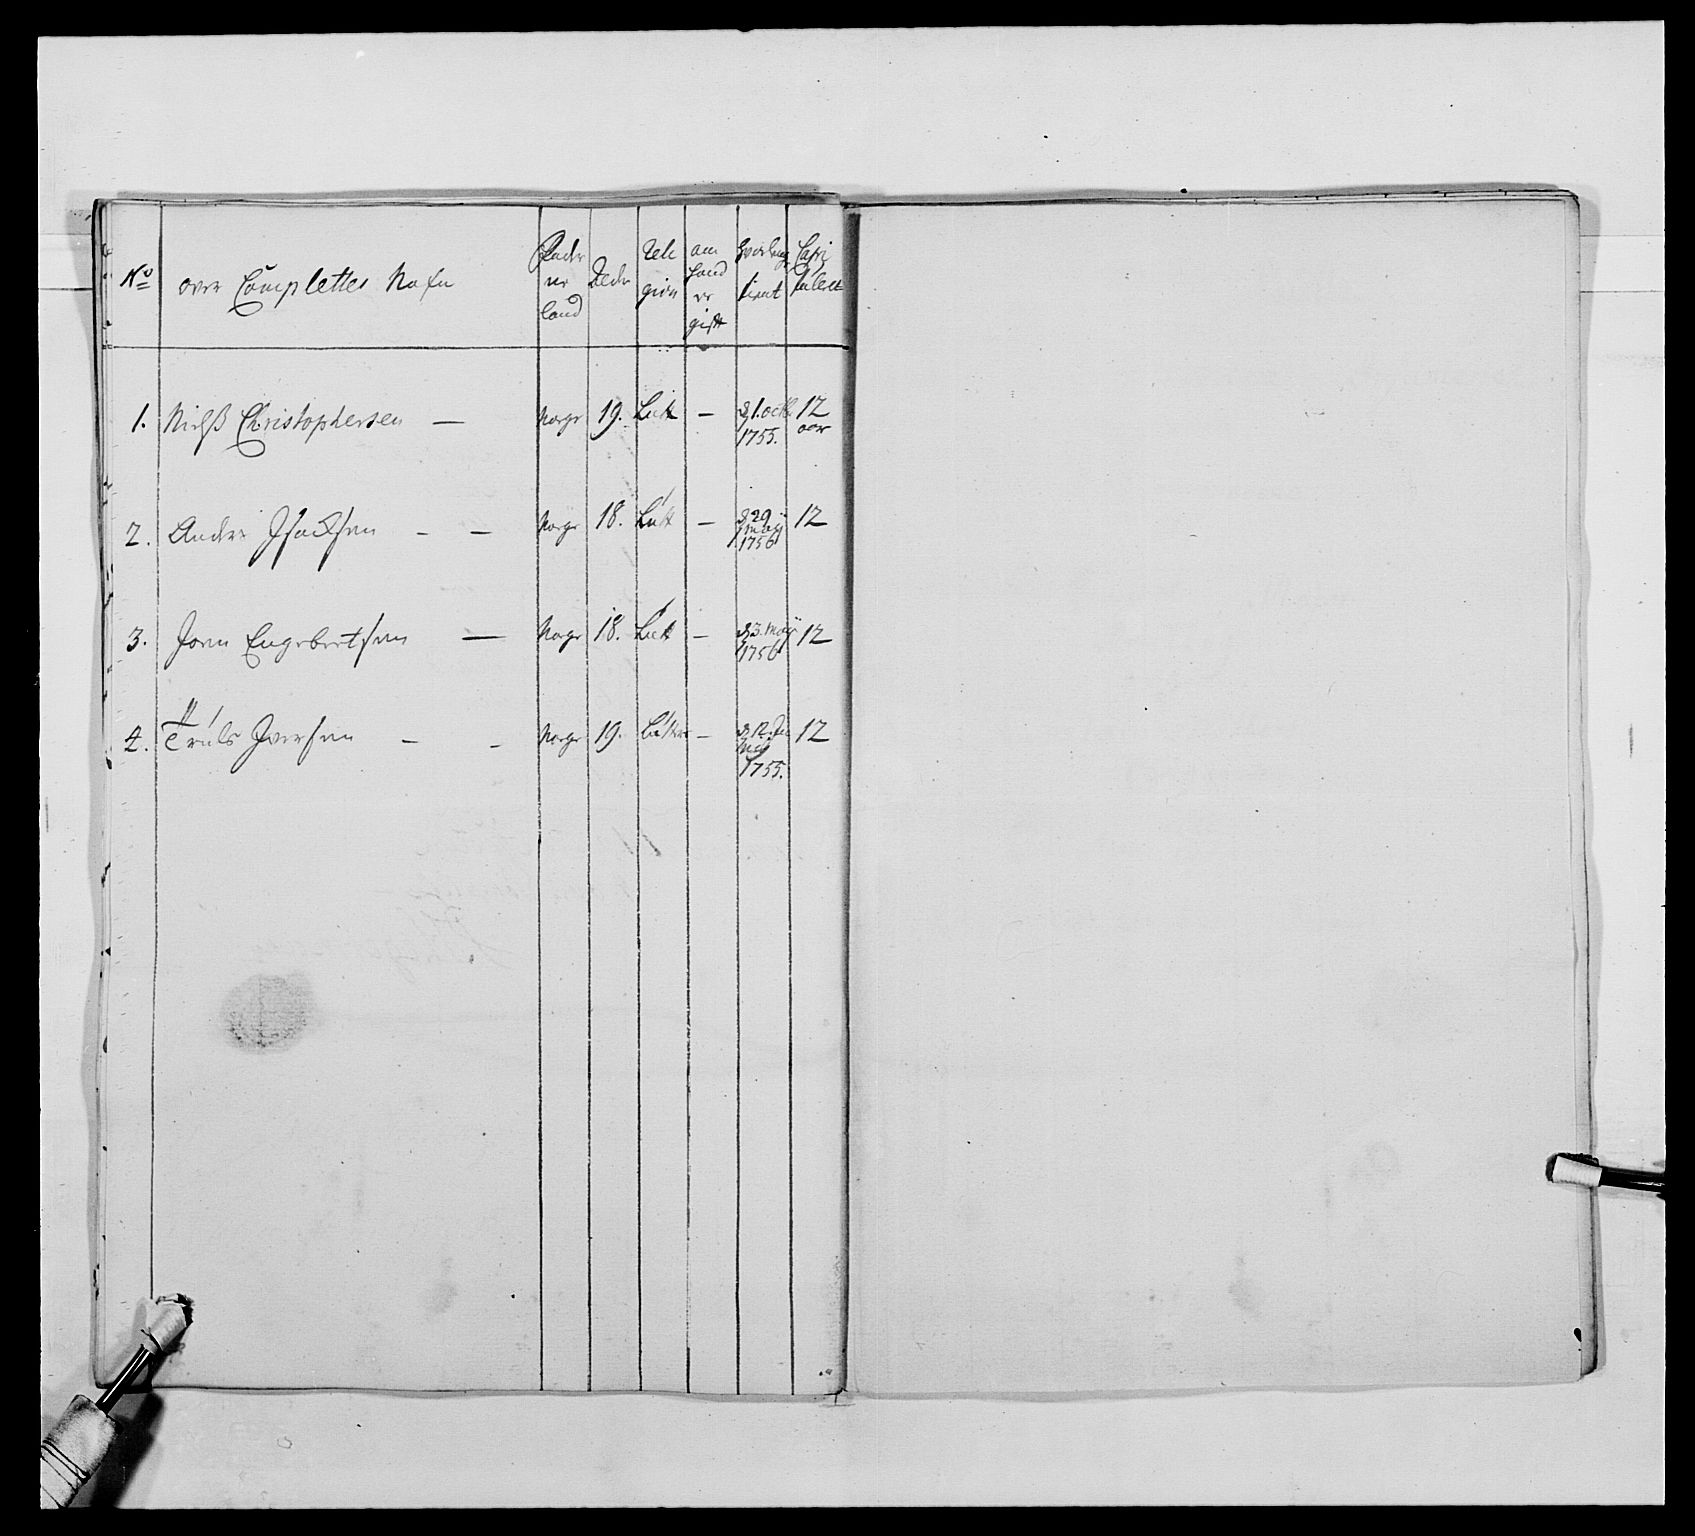 No over Complettes Nafn Fæder ne land Alder Reli gion om hand er gift hvorlenge tient Capi tulert
1. Nielß Christophersen — Norge 19. Lutt — d 1. octb. 1755. 12 aar
2. Anders Isacksen — — Norge 18. Lutt — d 29 maij 1756 12
3. Joen Engebertsen — Norge 18. Lutt — d 3. maij 1756 12
4. Truls Iversen — — Norge 19. Lutter — d 12. 1755. 12